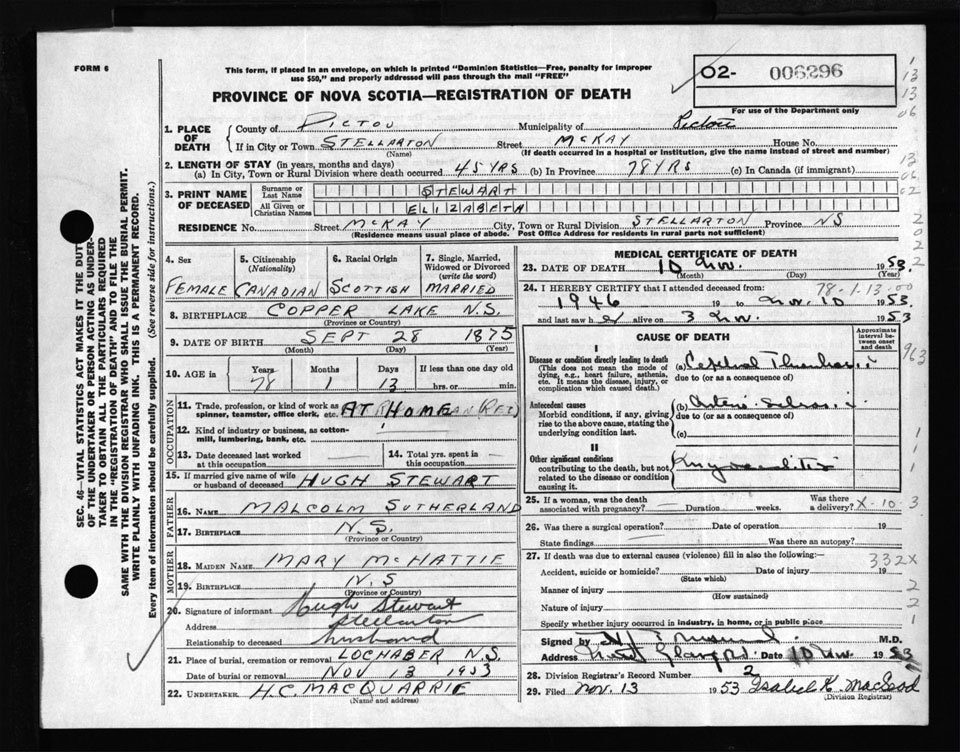 FORM 6
This form, if placed in an envelope, on which is printed "Dominion Statistics—Free, penalty for improper
use $50," and properly addressed will pass through the mail "FREE"
PROVINCE OF NOVA SCOTIA—REGISTRATION OF DEATH
O2- 006296
For use of the Department only
1 13 13 06
13 06 02
2 0 2
SEC. 46—VITAL STATISTICS ACT MAKES IT THE DUTY
OF THE UNDERTAKER OR PERSON ACTING AS UNDER-
TAKER TO OBTAIN ALL THE PARTICULARS REQUIRED
IN THE "REGISTRATION OF DEATH" AND TO FILE THE
SAME WITH THE DIVISION REGISTRAR WHO SHALL ISSUE THE BURIAL PERMIT.
WRITE PLAINLY WITH UNFADING INK. THIS IS A PERMANENT RECORD.
Every item of information should be carefully supplied. (See reverse side for instructions.)
1. PLACE OF DEATH
County of PICTOU Municipality of Pictou
If in City or Town STELLARTON (Name) Street McKAY House No.
(If death occurred in a hospital or institution, give the name instead of street and number)
2. LENGTH OF STAY (in years, months and days)
(a) In City, Town or Rural Division where death occurred 45 YRS (b) In Province 78 YRS (c) In Canada (if immigrant)
3. PRINT NAME OF DECEASED
Surname or Last Name STEWART
All Given or Christian Names ELIZABETH
RESIDENCE No. Street McKAY City, Town or Rural Division STELLARTON Province NS
(Residence means usual place of abode. Post Office Address for residents in rural parts not sufficient)
4. Sex FEMALE
5. Citizenship (Nationality) CANADIAN
6. Racial Origin SCOTTISH
7. Single, Married, Widowed or Divorced (write the word) MARRIED
8. BIRTHPLACE COPPER LAKE N.S.
(Province or Country)
9. DATE OF BIRTH SEPT 28 1875
(Month) (Day) (Year)
10. AGE in Years 78 Months 1 Days 13 If less than one day old hrs. or min.
OCCUPATION
11. Trade, profession, or kind of work as spinner, teamster, office clerk, etc. AT HOME
12. Kind of industry or business, as cotton-mill, lumbering, bank, etc.
13. Date deceased last worked at this occupation
14. Total yrs. spent in this occupation
15. If married give name of wife or husband of deceased HUGH STEWART
FATHER
16. NAME MALCOLM SUTHERLAND
17. BIRTHPLACE N.S.
(Province or Country)
MOTHER
18. MAIDEN NAME MARY McHATTIE
19. BIRTHPLACE N.S
(Province or Country)
20. Signature of informant Hugh Stewart
Address Stellarton
Relationship to deceased husband
21. Place of burial, cremation or removal LOCHABER N.S.
Date of burial or removal NOV 13 1953
22. UNDERTAKER H.C. MACQUARRIE
(Name and address)
MEDICAL CERTIFICATE OF DEATH
23. DATE OF DEATH 10 Nov. 1953.
(Month) (Day) (Year)
78-1-13-00
24. I HEREBY CERTIFY that I attended deceased from:
1946 19 to Nov. 10 1953.
and last saw her alive on 3 Nov. 1953
CAUSE OF DEATH
Approximate interval between onset and death
963
I
Disease or condition directly leading to death
(This does not mean the mode of dying, e.g., heart failure, asthenia, etc. It means the disease, injury, or complication which caused death.)
(a)
due to (or as a consequence of)
Antecedent causes
Morbid conditions, if any, giving rise to the above cause, stating the underlying condition last.
(b)
due to (or as a consequence of)
(c)
II
Other significant conditions
contributing to the death, but not related to the disease or condition causing it.
1 1 1
25. If a woman, was the death associated with pregnancy? Duration weeks. Was there a delivery? X-10-3
26. Was there a surgical operation? Date of operation 19
State findings Was there an autopsy?
27. If death was due to external causes (violence) fill in also the following:
332X
Accident, suicide or homicide? Date of injury 19
(State which)
Manner of injury 2
(How sustained)
Nature of injury 2
Specify whether injury occurred in industry, in home, or in public place 1
Signed by M.D.
Address New Glasgow Date 10 Nov. 1953
28. Division Registrar's Record Number 2
29. Filed Nov. 13 1953 Isabel K. MacLeod
(Division Registrar)